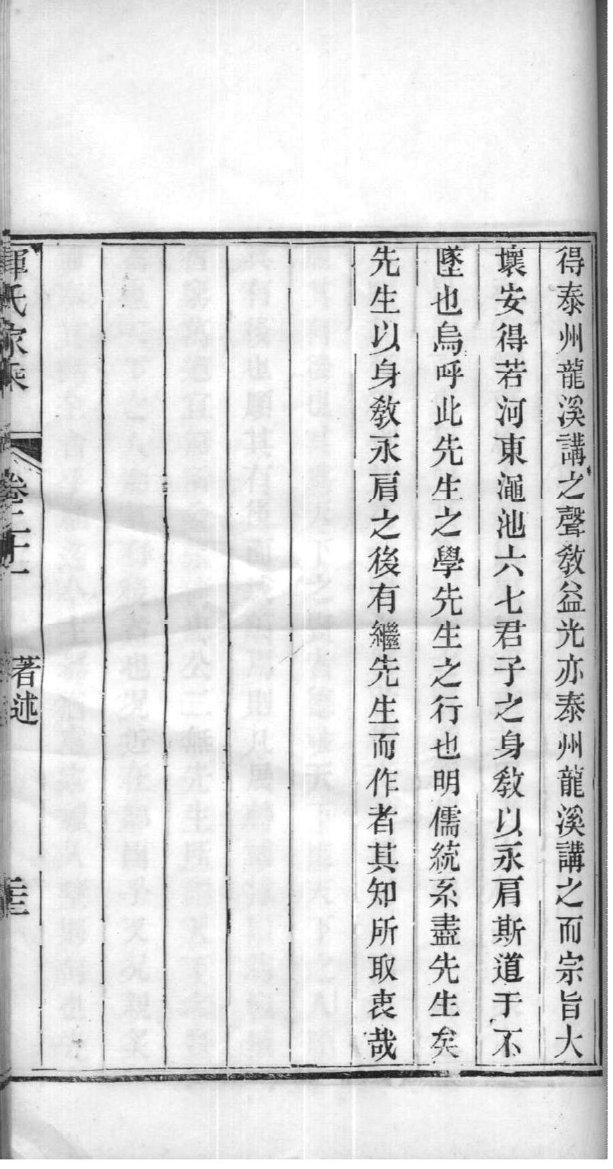 得泰州龍溪講之聲敎益光亦泰州龍溪講之而宗旨大
壞安得若河東澠池六七君子之身敎以永肩斯道于不
墜也烏呼此先生之學先生之行也明儒統系盡先生矣
先生以身敎永肩之後有繼先生而作者其知所取衷哉
惲氏家乘
卷二十一
著述